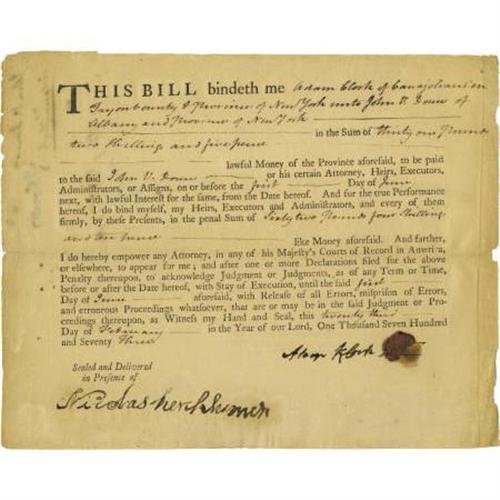 THIS BILL bindeth me Adam Clock of Canajohari in
Tryon County & Province of New York unto John V. Douw of
Albany and Province of New York
in the Sum of thirty one Pounds
two Shillings and five pence
lawful Money of the Province aforesaid, to be paid
to the said John V: Douw or his certain Attorney, Heirs, Executors,
Administrators, or Assigns, on or before the first Day of June
next, with lawful Interest for the same, from the Date hereof. And for the true Performance
hereof, I do bind myself, my Heirs, Executors and Administrators, and every of them
firmly, by these Presents, in the penal Sum of Sixty two Pounds four Shillings
and ten pence
like Money aforesaid. And farther,
I do hereby empower any Attorney, in any of his Majesty's Courts of Record in America,
or elsewhere, to appear for me; and after one or more Declarations filed for the above
Penalty thereupon, to acknowledge Judgment or Judgments, as of any Term or Time,
before or after the Date hereof, with Stay of Execution, until the said first
Day of June aforesaid, with Release of all Errors, misprision of Errors,
and erroneous Proceedings whatsoever, that are or may be in the said Judgment or Pro-
ceedings thereupon, as Witness my Hand and Seal, this twenty third
Day of February in the Year of our Lord, One Thousand Seven Hundred
and Seventy Three
Adam Klock
Sealed and Delivered
in Presence of
Nicolas herchheimer